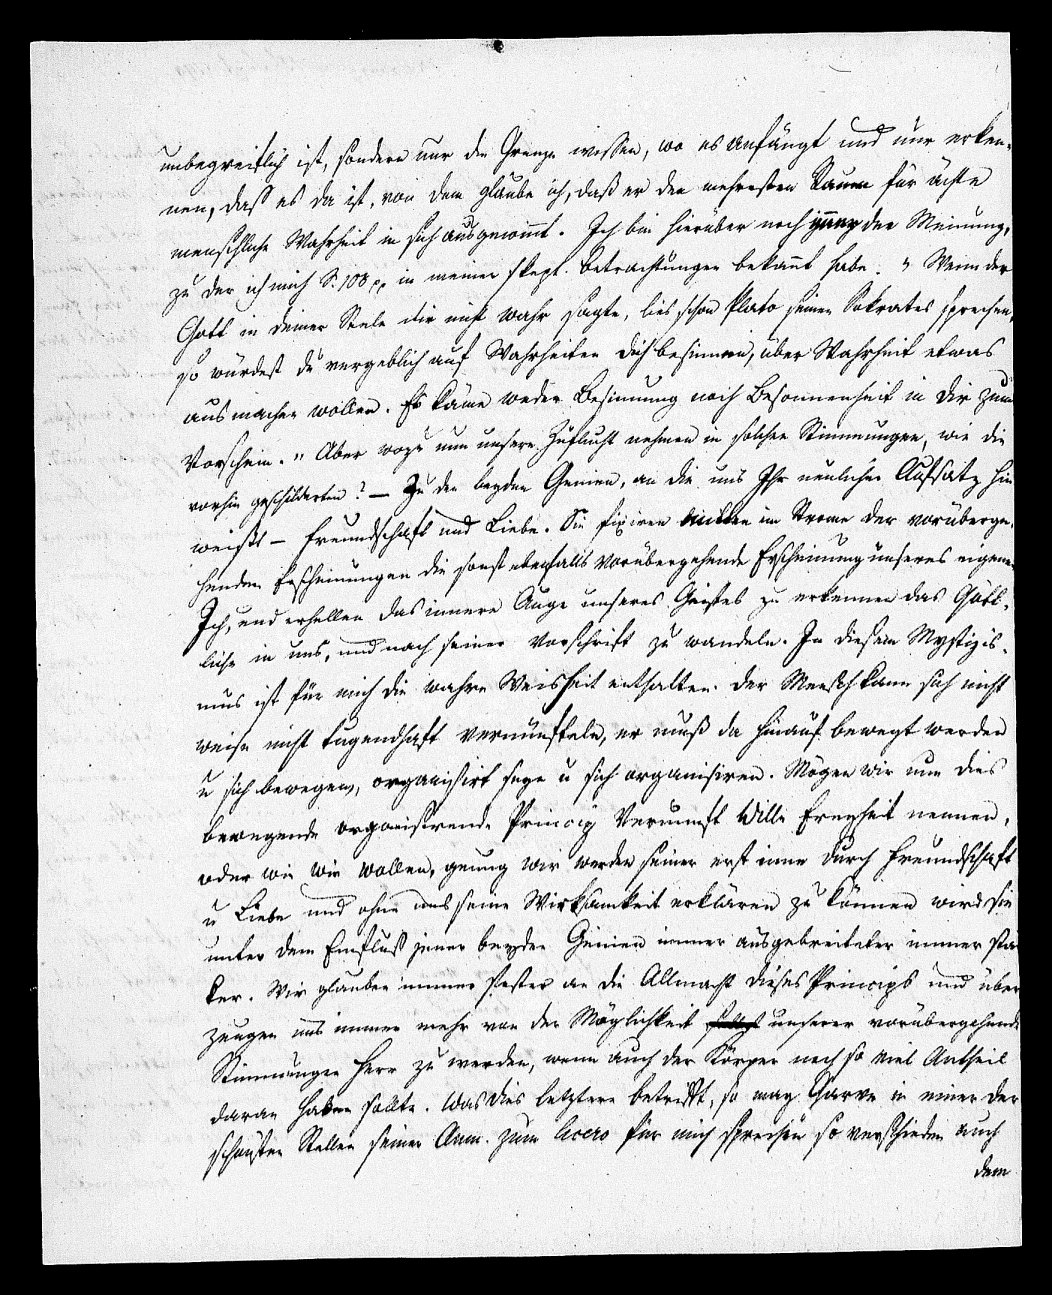 unbegreiflich ist, sondern nur die Grenze wissen, wo es anfängt und nur erken-
nen, dass es da ist, von dem glaube ich, daß er den mehresten Raum für ächte
menschliche Wahrheit in sich ausgewinnt. Ich bin hierüber noch immer der Meinung,
zu der ich mich S. 108 pp in meinen skept. Betrachtungen bekannt habe. „Wenn der
Gott in deiner Seele dir nicht wahr sagte, lies schon Plato seinen Sokrates sprechen,
so würdest du vergeblich auf Wahrheiten dich besinnen, über Wahrheit etwas
ausmachen wollen. Es käme weder Besinnung noch Besonnenheit in dir zum
Vorschein.“ Aber wozu nun unsere Zuflucht nehmen in solchen Stimmungen, wie die
vorhin geschilderten? — Zu den beyden Genien, an die uns Ihr neulicher Aufsatz hin
weißt — Freundschaft und Liebe. Sie fixiren mitten im Strome der vorüberge-
henden Erscheinungen die sonst ebenfalls vorübergehende Erscheinung unseres eigenen
Ich, und erhellen das innere Auge unseres Geistes zu erkennen das Gött-
liche in uns, und nach seiner Vorschrift zu wandeln. In diesem Mystizis-
mus ist für mich die wahre Weisheit enthalten. Der Mensch kann sich nicht
weise nicht tugendhaft vernünfteln, er muß da hinauf bewegt werden
u sich bewegen, organisirt seyn u sich organisiren. Mögen wir nun dies
bewegende organisirende Princip Vernunft Wille Freyheit nennen,
oder wie wir wollen, genug wir werden seiner erst inne durch Freundschaft
u Liebe und ohne uns seine Wirksamkeit erklären zu können wird sie
unter dem Einfluß jener beyden Genien immer ausgebreiteter immer stär
ker. Wir glauben immer fester an die Allmacht dieses Princips und über
zeugen uns immer mehr von der Möglichkeit unserer vorübergehende
Stimmungen Herr zu werden, wenn auch der Körper noch so viel Antheil
daran haben sollte. Was dies letztere betrifft, so mag Garve in einer der
schönsten Stellen seiner Anm. zum Cicero für mich sprechen so verschieden auch
dem